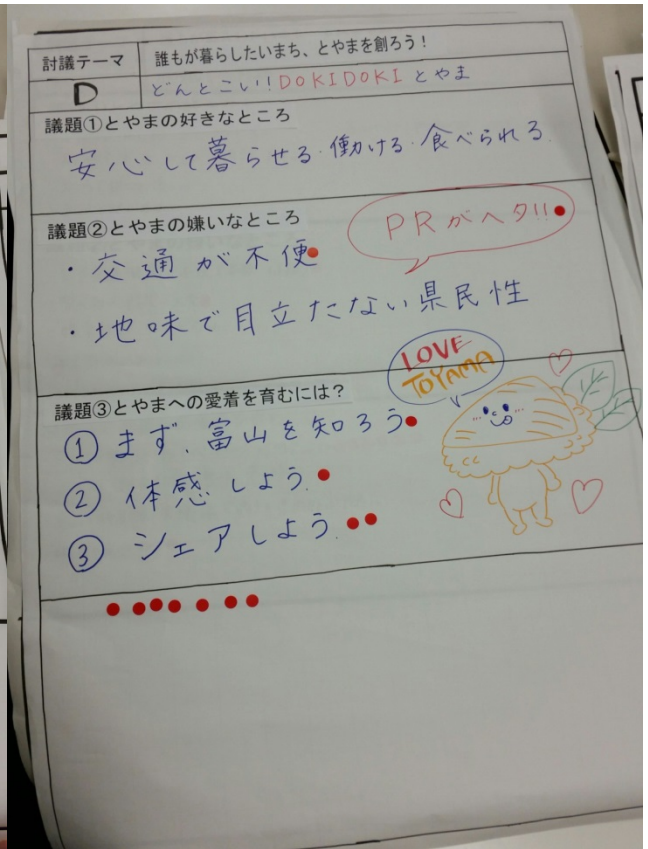 討議テーマ
誰もが暮らしたいまち、とやまを創ろう！
D
どんとこい！！DOKIDOKIとやま
議題①とやまの好きなところ
安心して暮らせる・働ける・食べられる
議題②とやまの嫌いなところ
PRがヘタ!!
・交通が不便
・地味で目立たない県民性
LOVE
TOYAMA
議題③とやまへの愛着を育むには？
① まず、富山を知ろう
② 体感しよう.
③ シェアしよう.